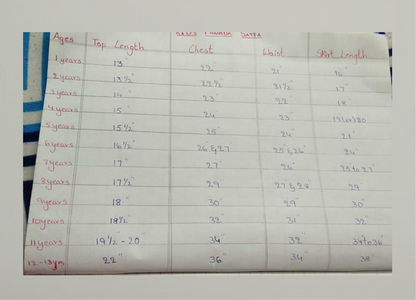 Ages Top Length Chest Waist Skirt Length
1 years 13" 22" 21" 16"
2 years 13 ½" 22 ½" 21 ½ 17"
3 years 14" 23" 22" 18"
4 years 15" 24" 23"
5 years 15 ½" 25" 24" 21"
6 years 16 ½" 26 & 27" 25 & 26" 24"
7 years 17" 27" 26" 25 to 27"
8 years 17 ½" 29" 27 & 28" 29"
9 years 18" 30" 29" 30"
10 years 18 ½" 32" 31" 32"
11 years 19 ½ - 20" 34" 32" 34 to 36"
12-13 yrs 22" 36" 34" 38"